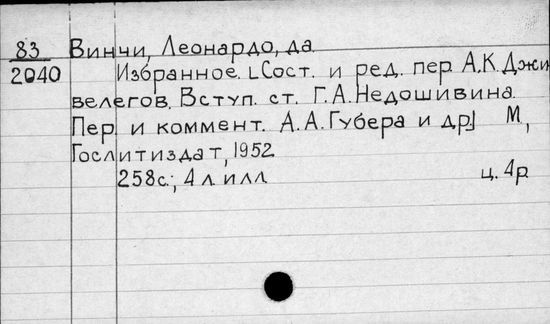 83 Винчи, Леонардо, да
2040 Избранное [Сост. и ред. пер А.К. Джи
велегов. Вступ. ст. Г.А. Недошивина.
Пер. и коммент. А.А. Губера и др] М,
Гослитиздат, 1952
258с.; 4 л илл ц. 4р